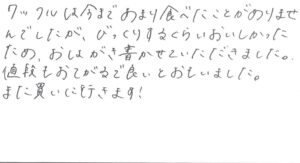 ワッフルは今まであまり食べたことがありませ
んでしたが、びっくりするくらいおいしかった
ため、おしょがき書かせていただきました。
値段もおてがるで良いとおもいました。
また買いに行きます!